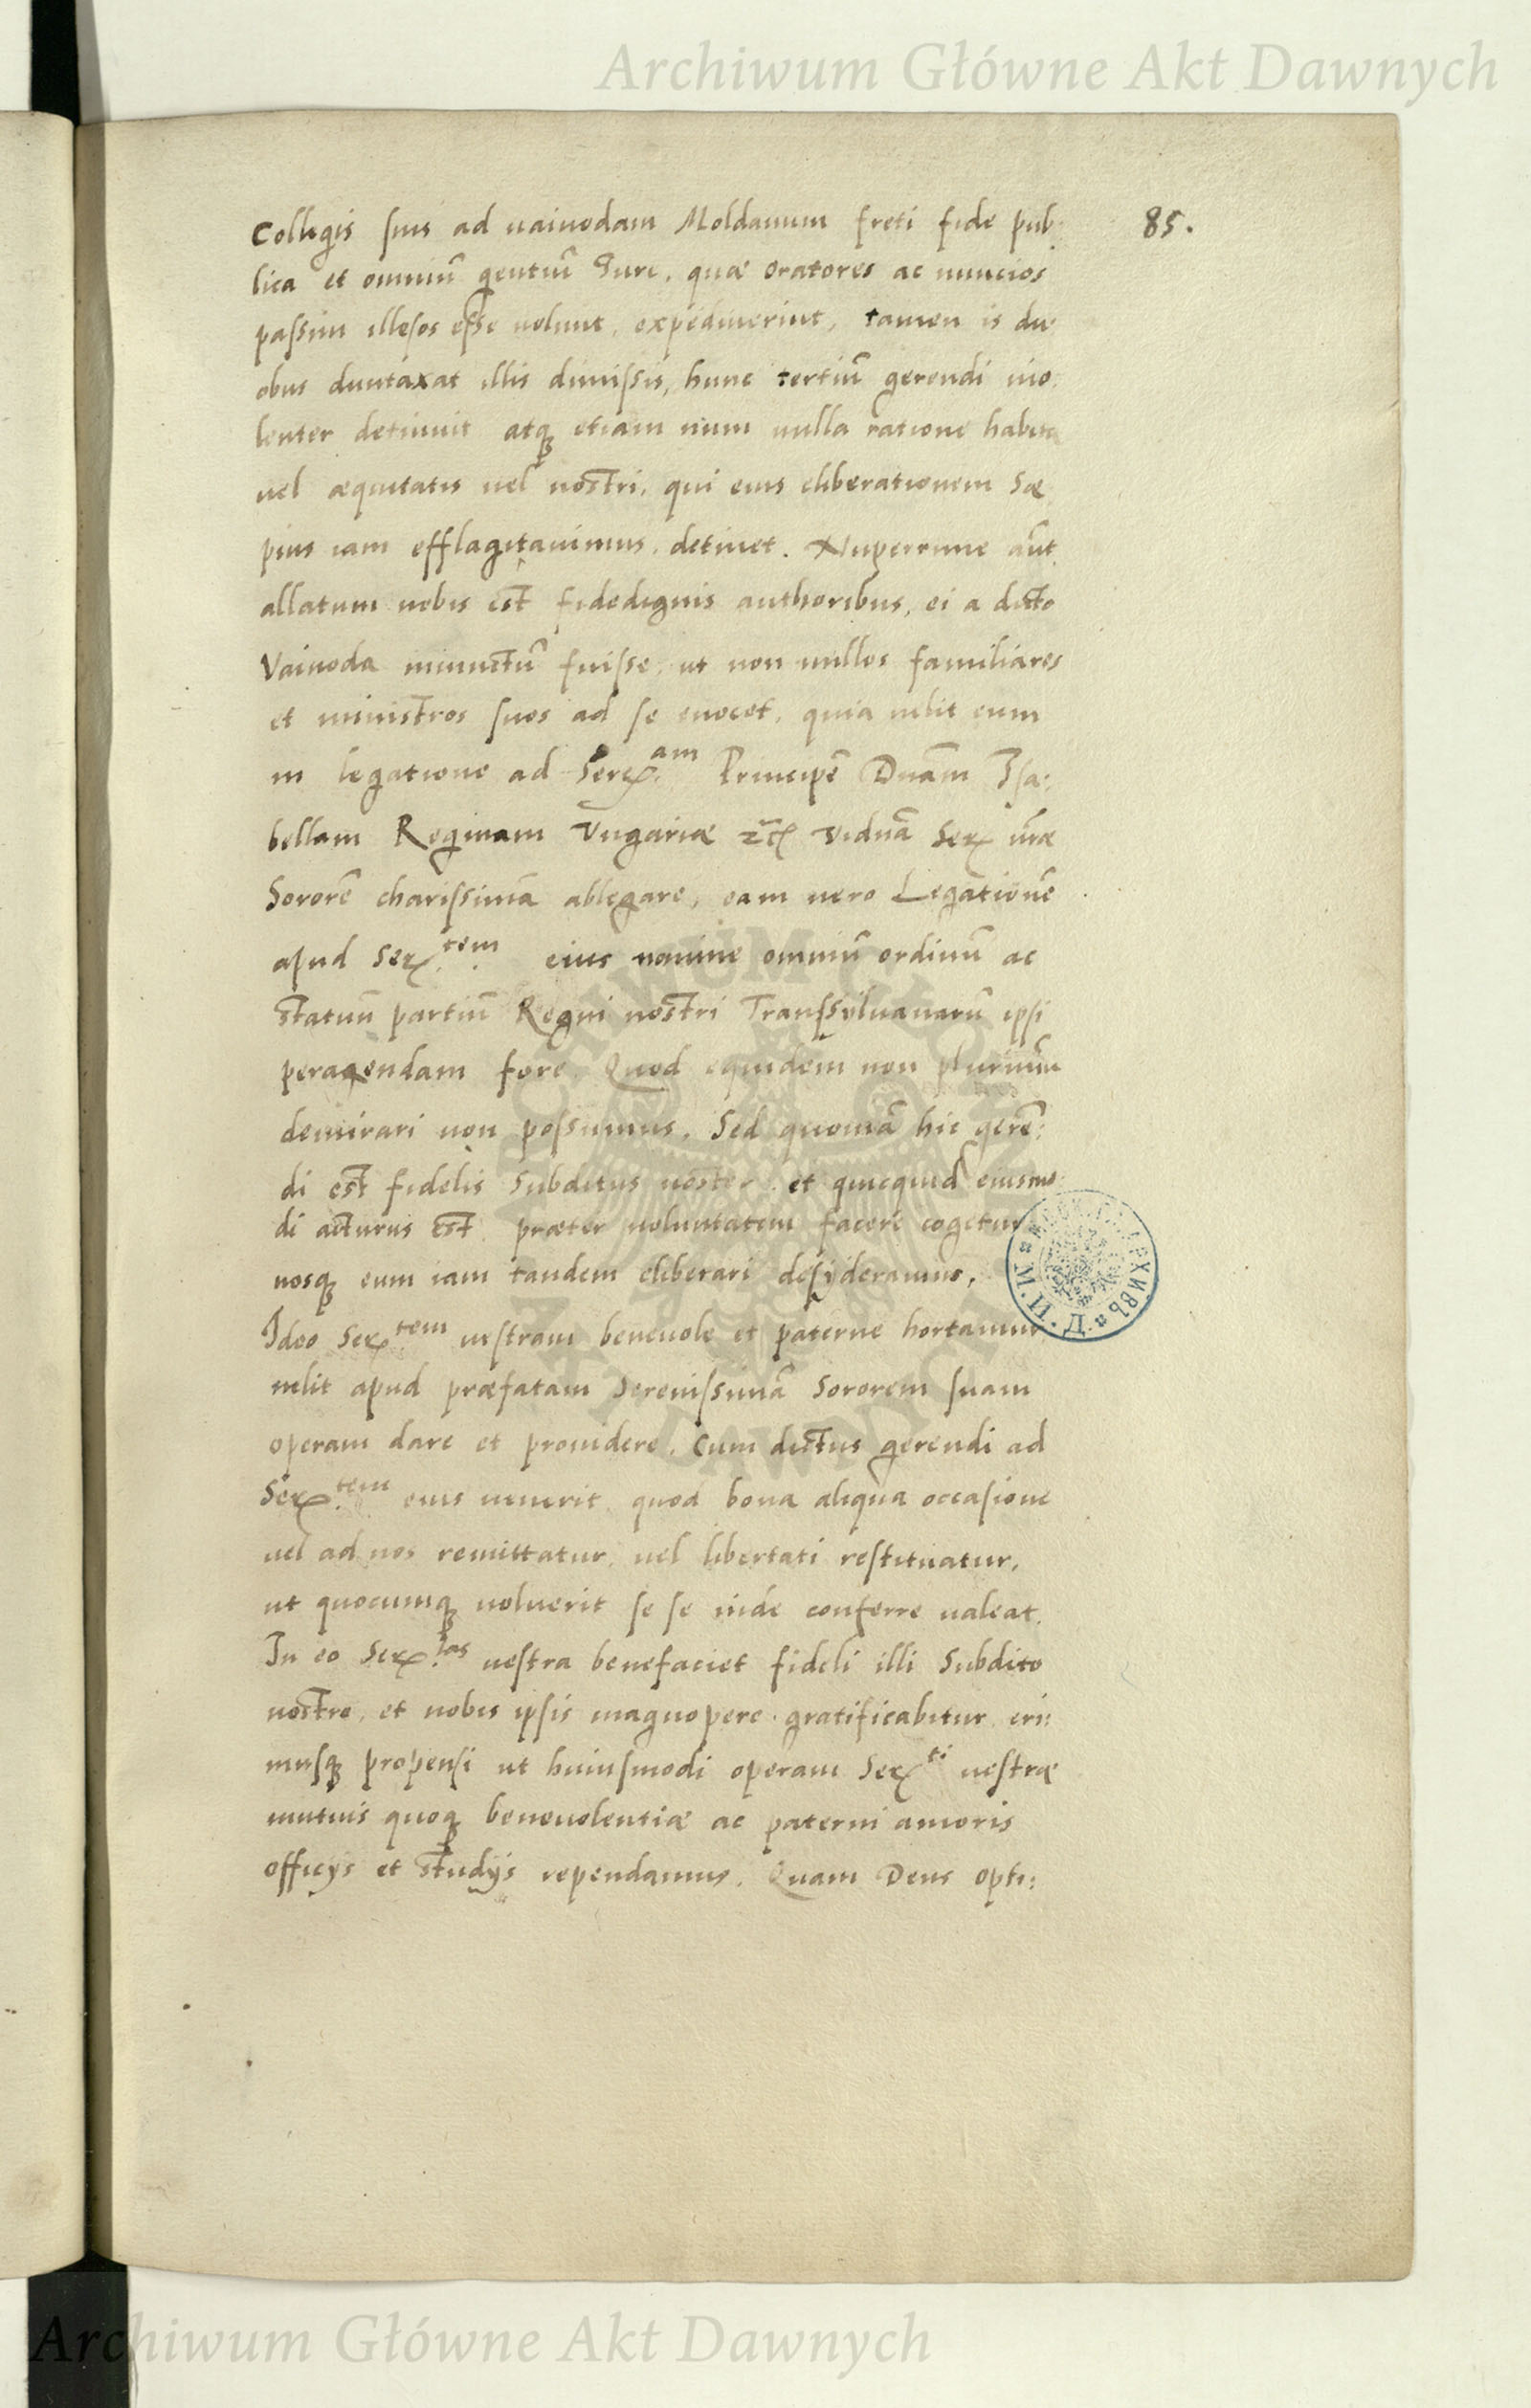 Archiwum Główne Akt Dawnych
85.
Collegis suis ad uaiuodam Moldauum freti fide pub:
lica et omniū gentiū Iure, quæ oratores ac nuncios
passim illesos esse uolunt, expediuerint, tamen is du:
obus duntaxat illis dimissis, hunc tertiū gerendi uio:
lenter detinuit atq etiam num nulla ratione habita
uel æquitatis uel nostri, qui eius eliberationem sæ
pius iam efflagitauimus, detinet. Nuperrime aūt
allatum nobis est fidedignis authoribus, ei a dicto
Vaiuoda iniunctū fuisse, ut non nullos familiares
et ministros suos ad se euocet, quia uelit eum
in legatione ad Serᵃᵐ Principē Dnām Isa:
bellam Reginam Vngariæ zc̄ viduā Ser vr̄æ
Sororē charissimā ablegare, eam uero Legationē
apud Serᵗᵉᵐ eius nomine omniū ordinū ac
statuū partiū Regni nostri Transsyluanarū ipsi
peragendam fore. Quod equidem non plurimū
demirari non possumus. Sed quoniā hic gerē:
di est fidelis Subditus noster, et quicquid eiusmo:
di acturus est, præter uoluntatem facere cogetur
nosq eum iam tandem eliberari desyderamus,
Ideo Serᵗᵉᵐ uestram beneuole et paterne hortamur
uelit apud præfatam Serenissimā Sororem suam
operam dare et prouidere, Cum dictus gerendi ad
Serᵗᵉᵐ eius uenerit, quod bona aliqua occasione
uel ad nos remittatur, uel libertati restituatur,
ut quocumq uoluerit se se inde conferre ualeat.
In eo Serᵗᵃˢ uestra benefaciet fideli illi Subdito
nostro, et nobis ipsis magnopere gratificabitur, eri:
musq propensi ut huiusmodi operam Serᵗⁱ uestræ
mutuis quoq beneuolentiæ ac paterni amoris
officijs et studijs rependamus. Quam Deus opti:
Archiwum Główne Akt Dawnych